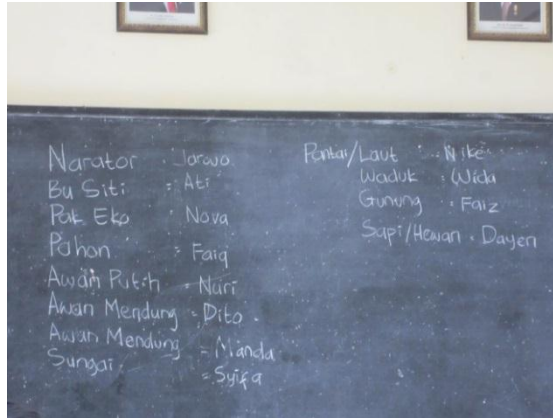 Narator : Jarwo
Bu Siti = Ati
Pak Eko : Nova
Pohon = Faiq
Awan Putih = Nuri
Awan Mendung = Dito
Awan Mendung = Manda
Sungai = Syifa
Pantai/Laut : Nike
Waduk : Wida
Gunung : Faiz
Sapi/Hewan : Dayen